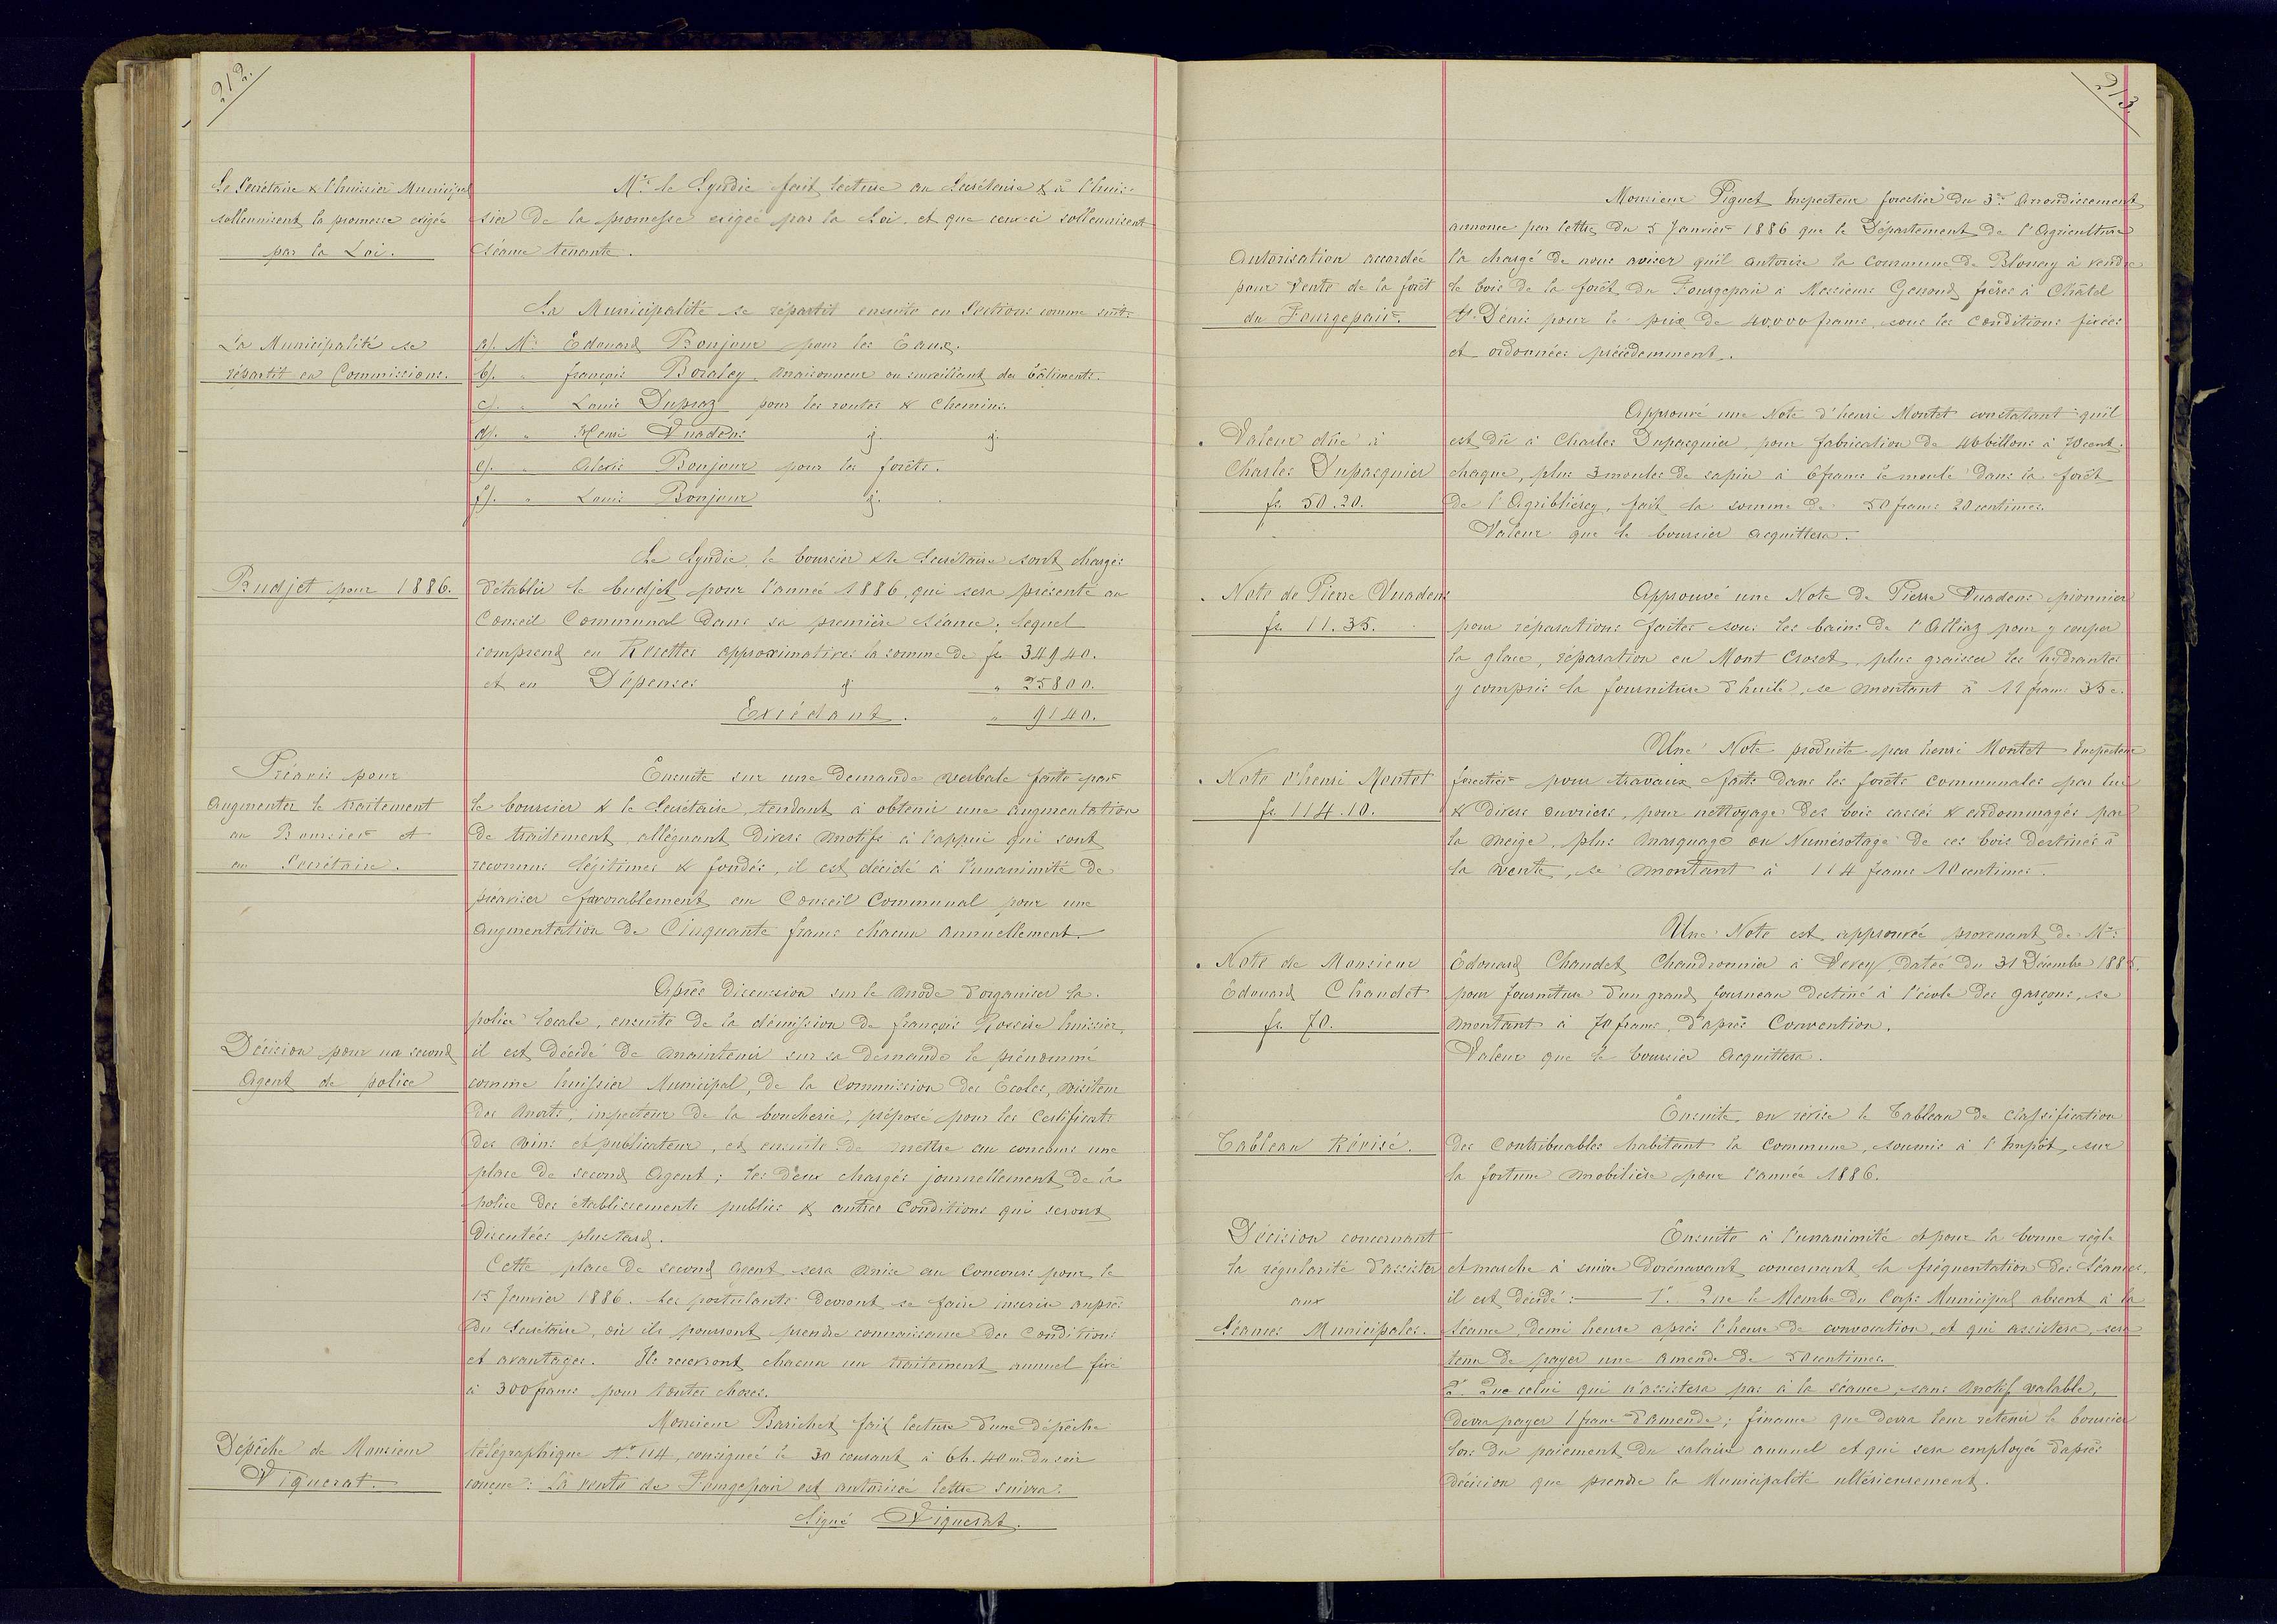 212.
Le Secrétaire & l'huissier Municipal
sollennisent la promesse exigée
par la Loi.
Mr. le Syndic fait lecture au Secrétaire & à l'huis-
sier de la promesse exigée par la Loi et que ceux-ci sollennisent
séance tenante.
La Municipalité se répartit ensuite en Sections comme suit:
La Municipalité se
répartit en Commissions.
a). Mr. Edouard Bonjour pour les Eaux.
b). " françois Boraley, maisonneur ou surveillant des bâtiments.
c). " Louis Dupraz pour les routes & Chemins
d). " Henri Vuadens j. j.
e). " Alexis Bonjour pour les forêts.
f). " Louis Bonjour j.
Le Syndic, le boursier & le Secrétaire sont chargés
Budjet pour 1886.
d'établir le budjet pour l'année 1886, qui sera présenté au
Conseil Communal dans sa première séance; lequel
comprend en Recettes approximatives la somme de fr. 34940.
et en Dépenses j. " 25800.
Excédant. " 9140.
Préavis pour
augmenter le traitement
au Boursier et
au Secrétaire.
Ensuite sur une demande verbale faite par
le boursier & le Secrétaire, tendant à obtenir une augmentation
de traitement, alléguant divers motifs à l'appui qui sont
reconnus légitimes & fondés, il est décidé à l'unanimité de
préaviser favorablement au Conseil Communal pour une
augmentation de Cinquante francs chacun annuellement.
Après discussion sur le mode d'organiser la
police locale, ensuite de la démission de françois Rossire huissier,
Décision pour un second
Agent de police
il est décidé de maintenir sur sa demande le prénommé
comme huissier Municipal, de la Commission des Ecoles, visiteur
des morts, inspecteur de la boucherie, préposé pour les Certificats
des vins et publicateur, et ensuite de mettre au concours une
place de second Agent; les deux chargés journellement de la
police des établissements publics & autres Conditions qui seront
discutées plus tard.
Cette place de second agent sera mise au Concours pour le
15 Janvier 1886. Les postulants devront se faire inscrire auprès
du Secrétaire, où ils pourront prendre connaissance des Conditions
et avantages. Ils recevront chacun un traitement annuel fixé
à 300 francs pour toutes choses.
Dépêche de Monsieur
Viquerat.
Monsieur Barichet fait lecture d'une dépêche
télégraphique No. 114, consignée le 30 courant à 6 h. 40 m. du soir
conçue: La vente de Fourgepair est autorisée lettre suivra.
Signé Viquerat.
213.
Monsieur Piguet Inspecteur forestier du 3e. Arrondissement
annonce par lettre du 5 Janvier 1886 que le Département de l'Agriculture
Autorisation accordée
pour Vente de la forêt
du Fourgepair.
l'a chargé de nous aviser qu'il autorise la Commune de Blonay à vendre
le bois de la forêt du Fourgepair à Messieurs Genoud frères à Châtel
St. Dénis pour le prix de 40,000 francs, sous les Conditions fixées
et ordonnées précédemment.
Approuvé une Note d'henri Montet constatant qu'il
Valeur dûe à
Charles Dupasquier
fr. 50.20.
est dû à Charles Dupasquier, pour fabrication de 46 billons à 70 cent.
chaque, plus 3 moules de sapin à 6 francs le moule dans la forêt
de l'Agriblièrey, fait la somme de 50 francs 20 centimes.
Valeur que le boursier acquittera.
Note de Pierre Vuadens
fr. 11.35.
Approuvé une Note de Pierre Vuadens pionnier
pour réparations faites sous les bains de l'Alliaz pour y couper
la glace, réparation en Mont Croset, plus graisser les hydrantes
y compris la fourniture d'huile, se montant à 11 francs 35 c.
Une Note produite par henri Montet Inspecteur
Note d'henri Montet
fr. 114.10.
forestier pour travaux faits dans les forêts communales par lui
& divers ouvriers, pour nettoyage des bois cassés & endommagés par
la neige, plus marquage ou Numérotage de ces bois destinés à
la vente, se montant à 114 francs 10 centimes.
Une Note est approuvée provenant de Mr.
Note de Monsieur
Edouard Chaudet
fr. 70.
Edouard Chaudet Chaudronnier à Vevey, datée du 31 Décembre 1885,
pour fourniture d'un grand fourneau destiné à l'école des garçons, se
montant à 70 francs, d'après Convention.
Valeur que le boursier acquittera.
Ensuite, on révise le Tableau de classification
Tableau Révisé.
des Contribuables habitant la Commune, soumis à l'Impôt, sur
la fortune mobilière pour l'année 1886.
Décision concernant
la régularité d'assister
aux
Séances Municipales.
Ensuite à l'unanimité et pour la bonne règle
et marche à suivre dorénavant concernant la fréquentation des Séances,
il est décidé: 1°. Que le Membre du Corps Municipal absent à la
séance, demi heure après l'heure de convocation, et qui assistera, sera
tenu de payer une amende de 50 centimes.
2°. Que celui qui n'assistera pas à la séance, sans motif valable,
devra payer 1 franc d'amende; finance que devra leur retenir le boursier
lors du paiement du salaire annuel et qui sera employée d'après
décision que prendra la Municipalité ultérieurement.